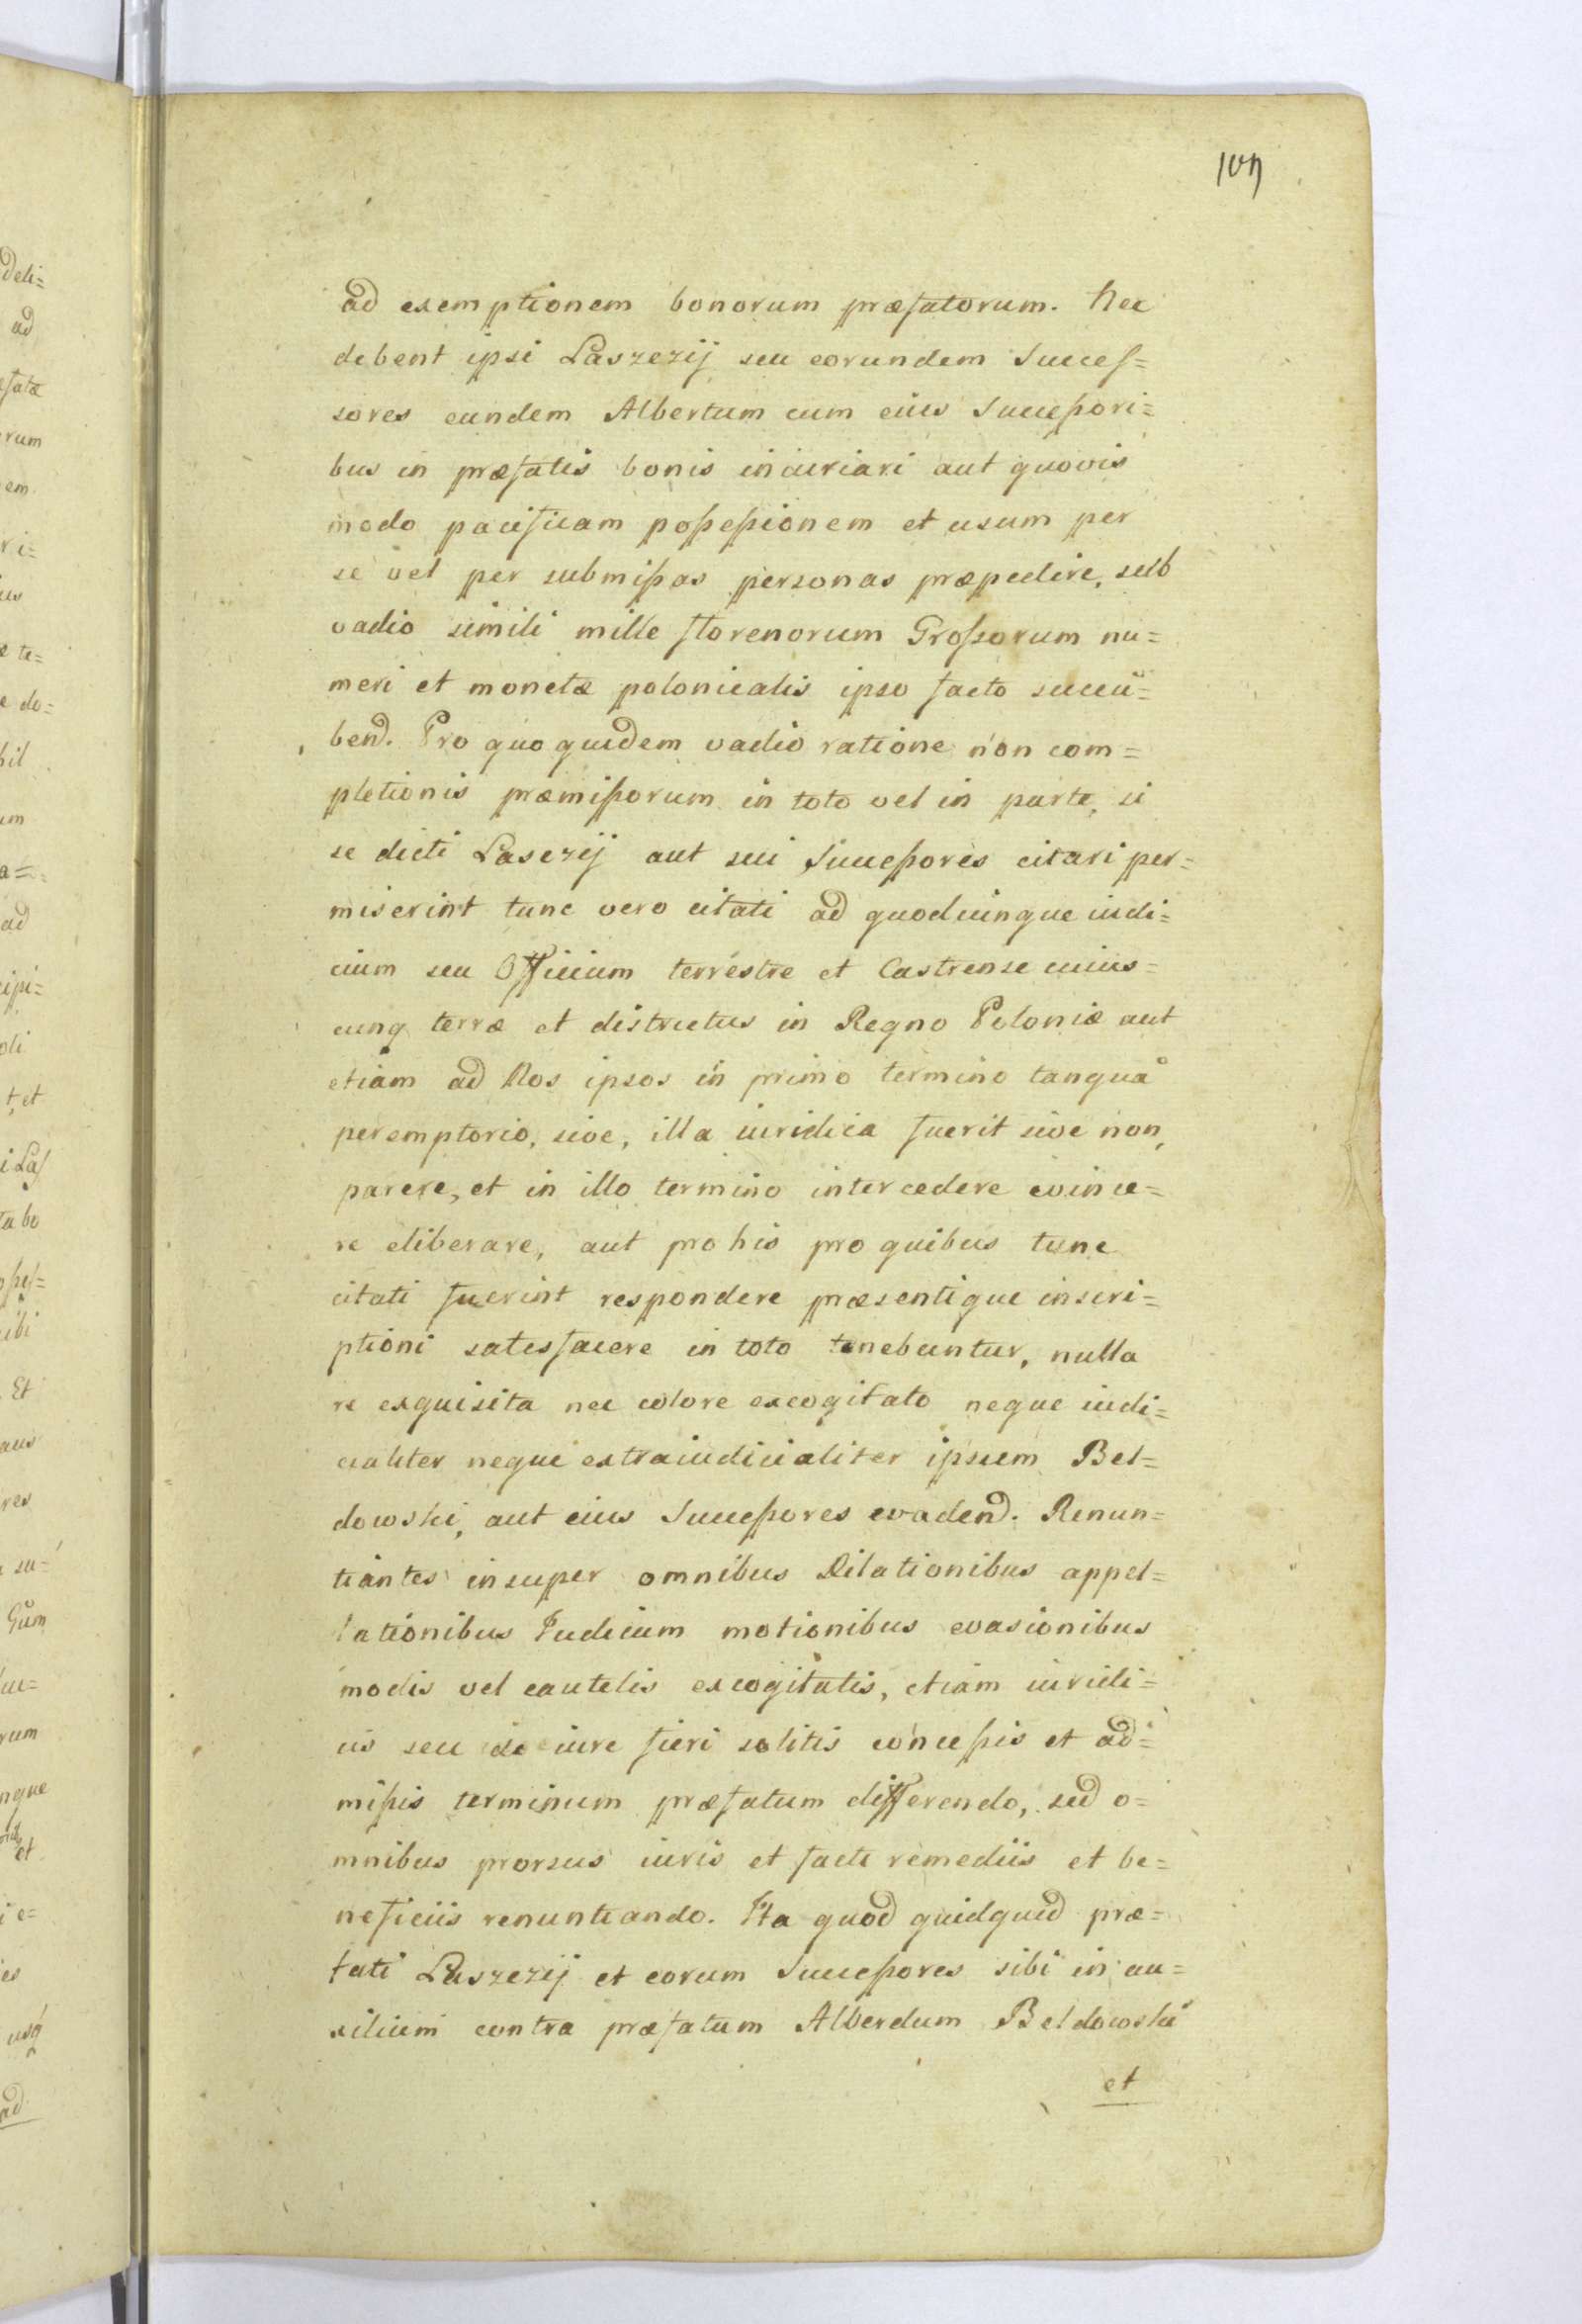 109
ad exemptionem bonorum præfatorum. Nec
debent ipsi Laszczij seu eorundem Succeſ=
sores eundem Albertum cum eius Succeßori=
bus in præfatis bonis iniuriari aut quovis
modo pacificam poßeßionem et usum per
se vel per submißas personas præpedire, sub
vadio simili mille florenorum Groſsorum nu=
meri et monetæ polonicalis ipso facto succu=
bend. Pro quo quidem vadio ratione non com=
pletionis præmißorum in toto vel in parte, si
se dicti Lasczij aut sui Succeßores citari per=
miserint tunc vero citati ad quodcunque iudi=
cium seu Officium terrestre et Castrense cuius=
cunq terræ et districtus in Regno Poloniæ aut
etiam ad Nos ipsos in primo termino tanqua
peremptorio, sive, illa iuridica fuerit sive non,
parere, et in illo termino intercedere evince=
re eliberare, aut pro his pro quibus tunc
citati fuerint respondere præsentique inscri=
ptioni satisfacere in toto tenebuntur, nulla
re exquisita nec colore excogitato neque iudi=
cialiter neque extraiudicialiter ipsum Bel=
dowski, aut eius Succeßores evadend. Renun=
tiantes insuper omnibus Dilationibus appel=
lationibus Iudicum motionibus evasionibus
modis vel cautelis excogitatis, etiam iuridi=
cis seu de iure fieri solitis conceßis et ad=
mißis terminum præfatum differendo, sed o=
mnibus prorsus iuris et facti remediis et be=
neficiis renuntiando. Ita quod quidquid præ=
fati Laszczij et eorum Succeßores sibi in au=
xilium contra præfatum Alberdum Beldowski
et